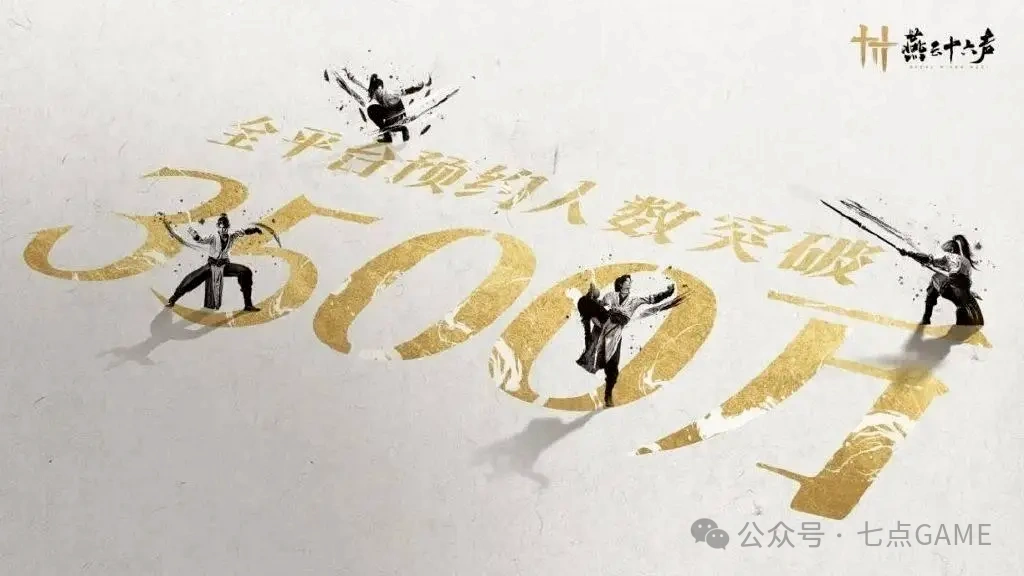 燕云十六声
全平台预约人数突破
3500万
公众号·七点GAME